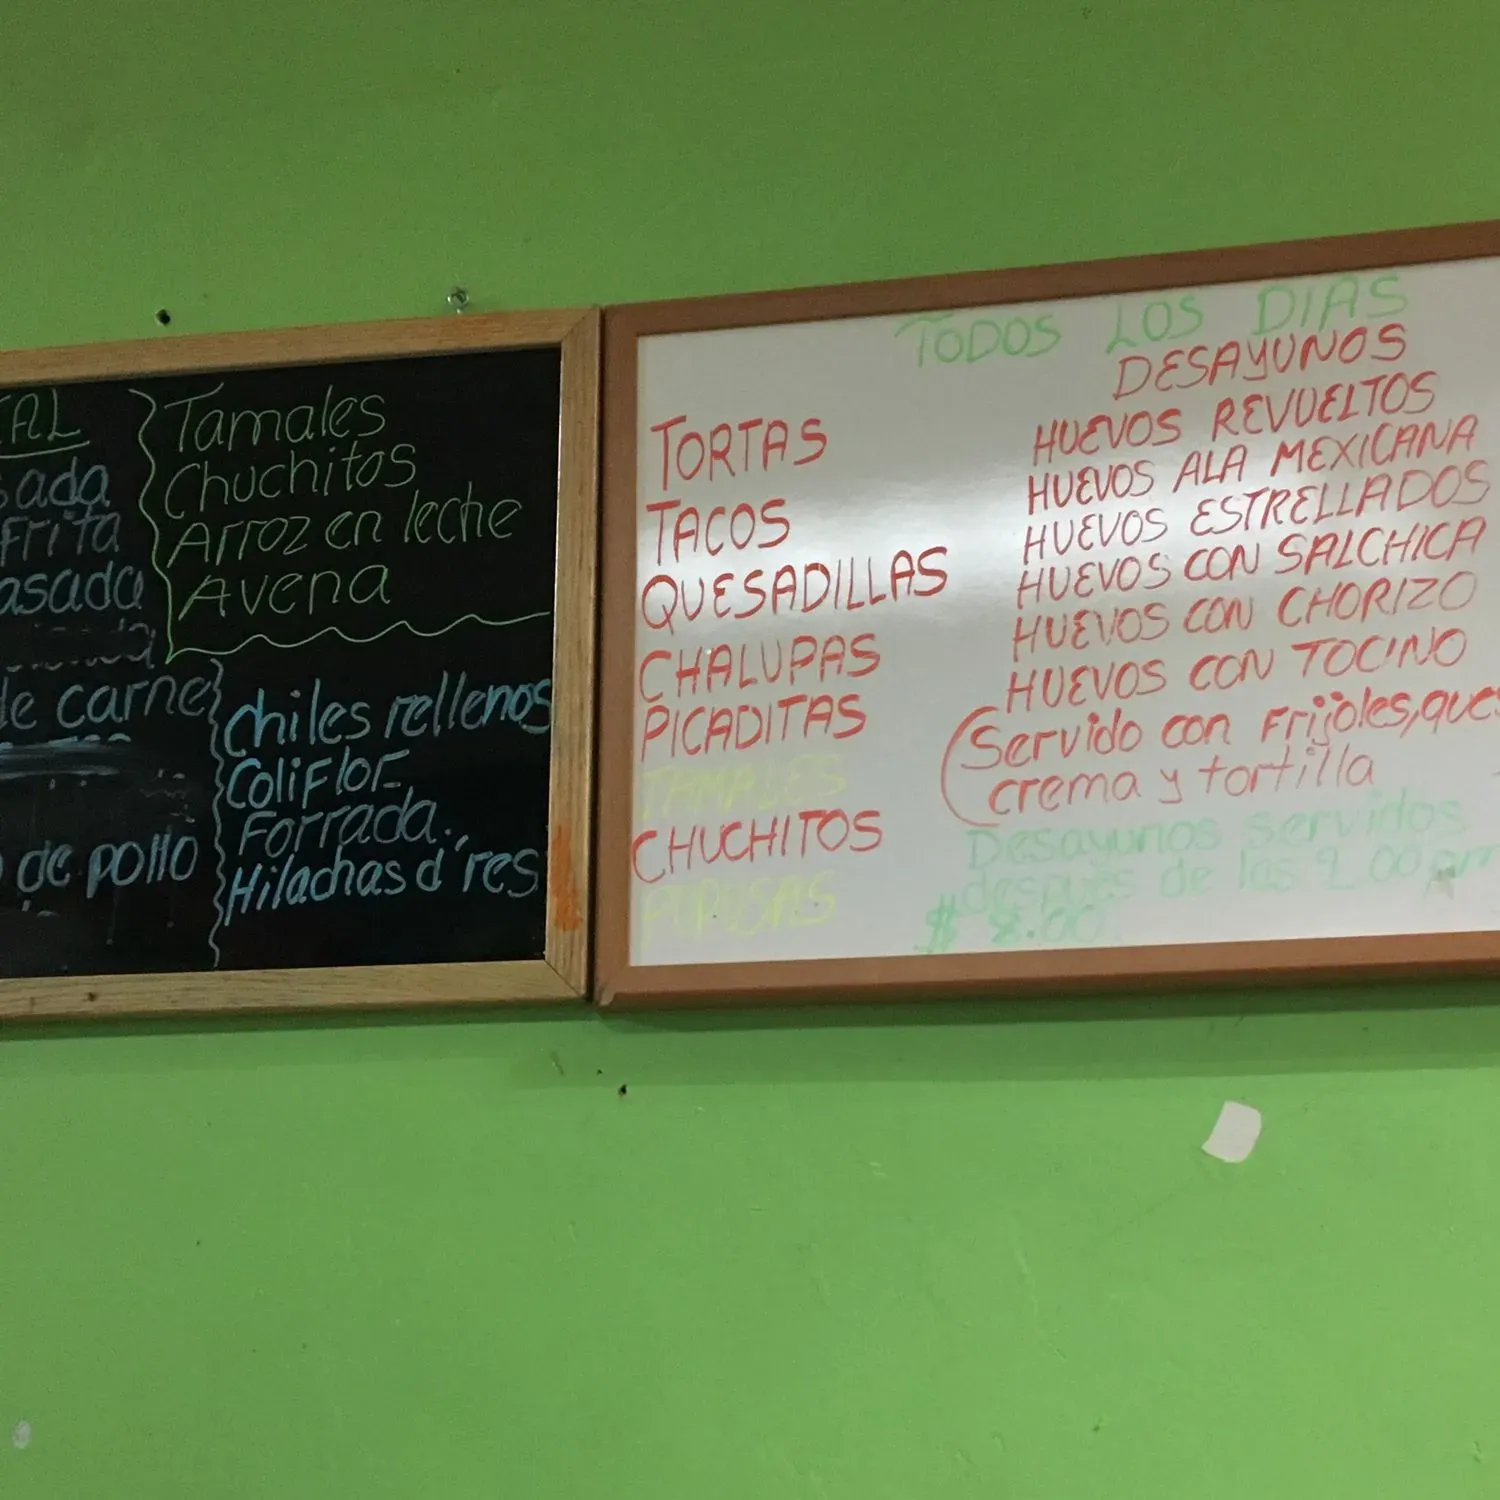 Tamales
Chuchitos
Arroz en leche
Avena
Frita
de carne
de pollo
chiles rellenos
Coliflor
Forrada.
Hilachas d' res
TODOS LOS DIAS
TORTAS
TACOS
QUESADILLAS
CHALUPAS
PICADITAS
TAMALES
CHUCHITOS
PUPUSAS
DESAYUNOS
HUEVOS REVUELTOS
HUEVOS ALA MEXICANA
HUEVOS ESTRELLADOS
HUEVOS CON SALCHICA
HUEVOS CON CHORIZO
HUEVOS CON TOCINO
(Servido con Frijoles, ques
crema y tortilla
Desayunos servidos
despues de las 2.00 pm
$ 8.00